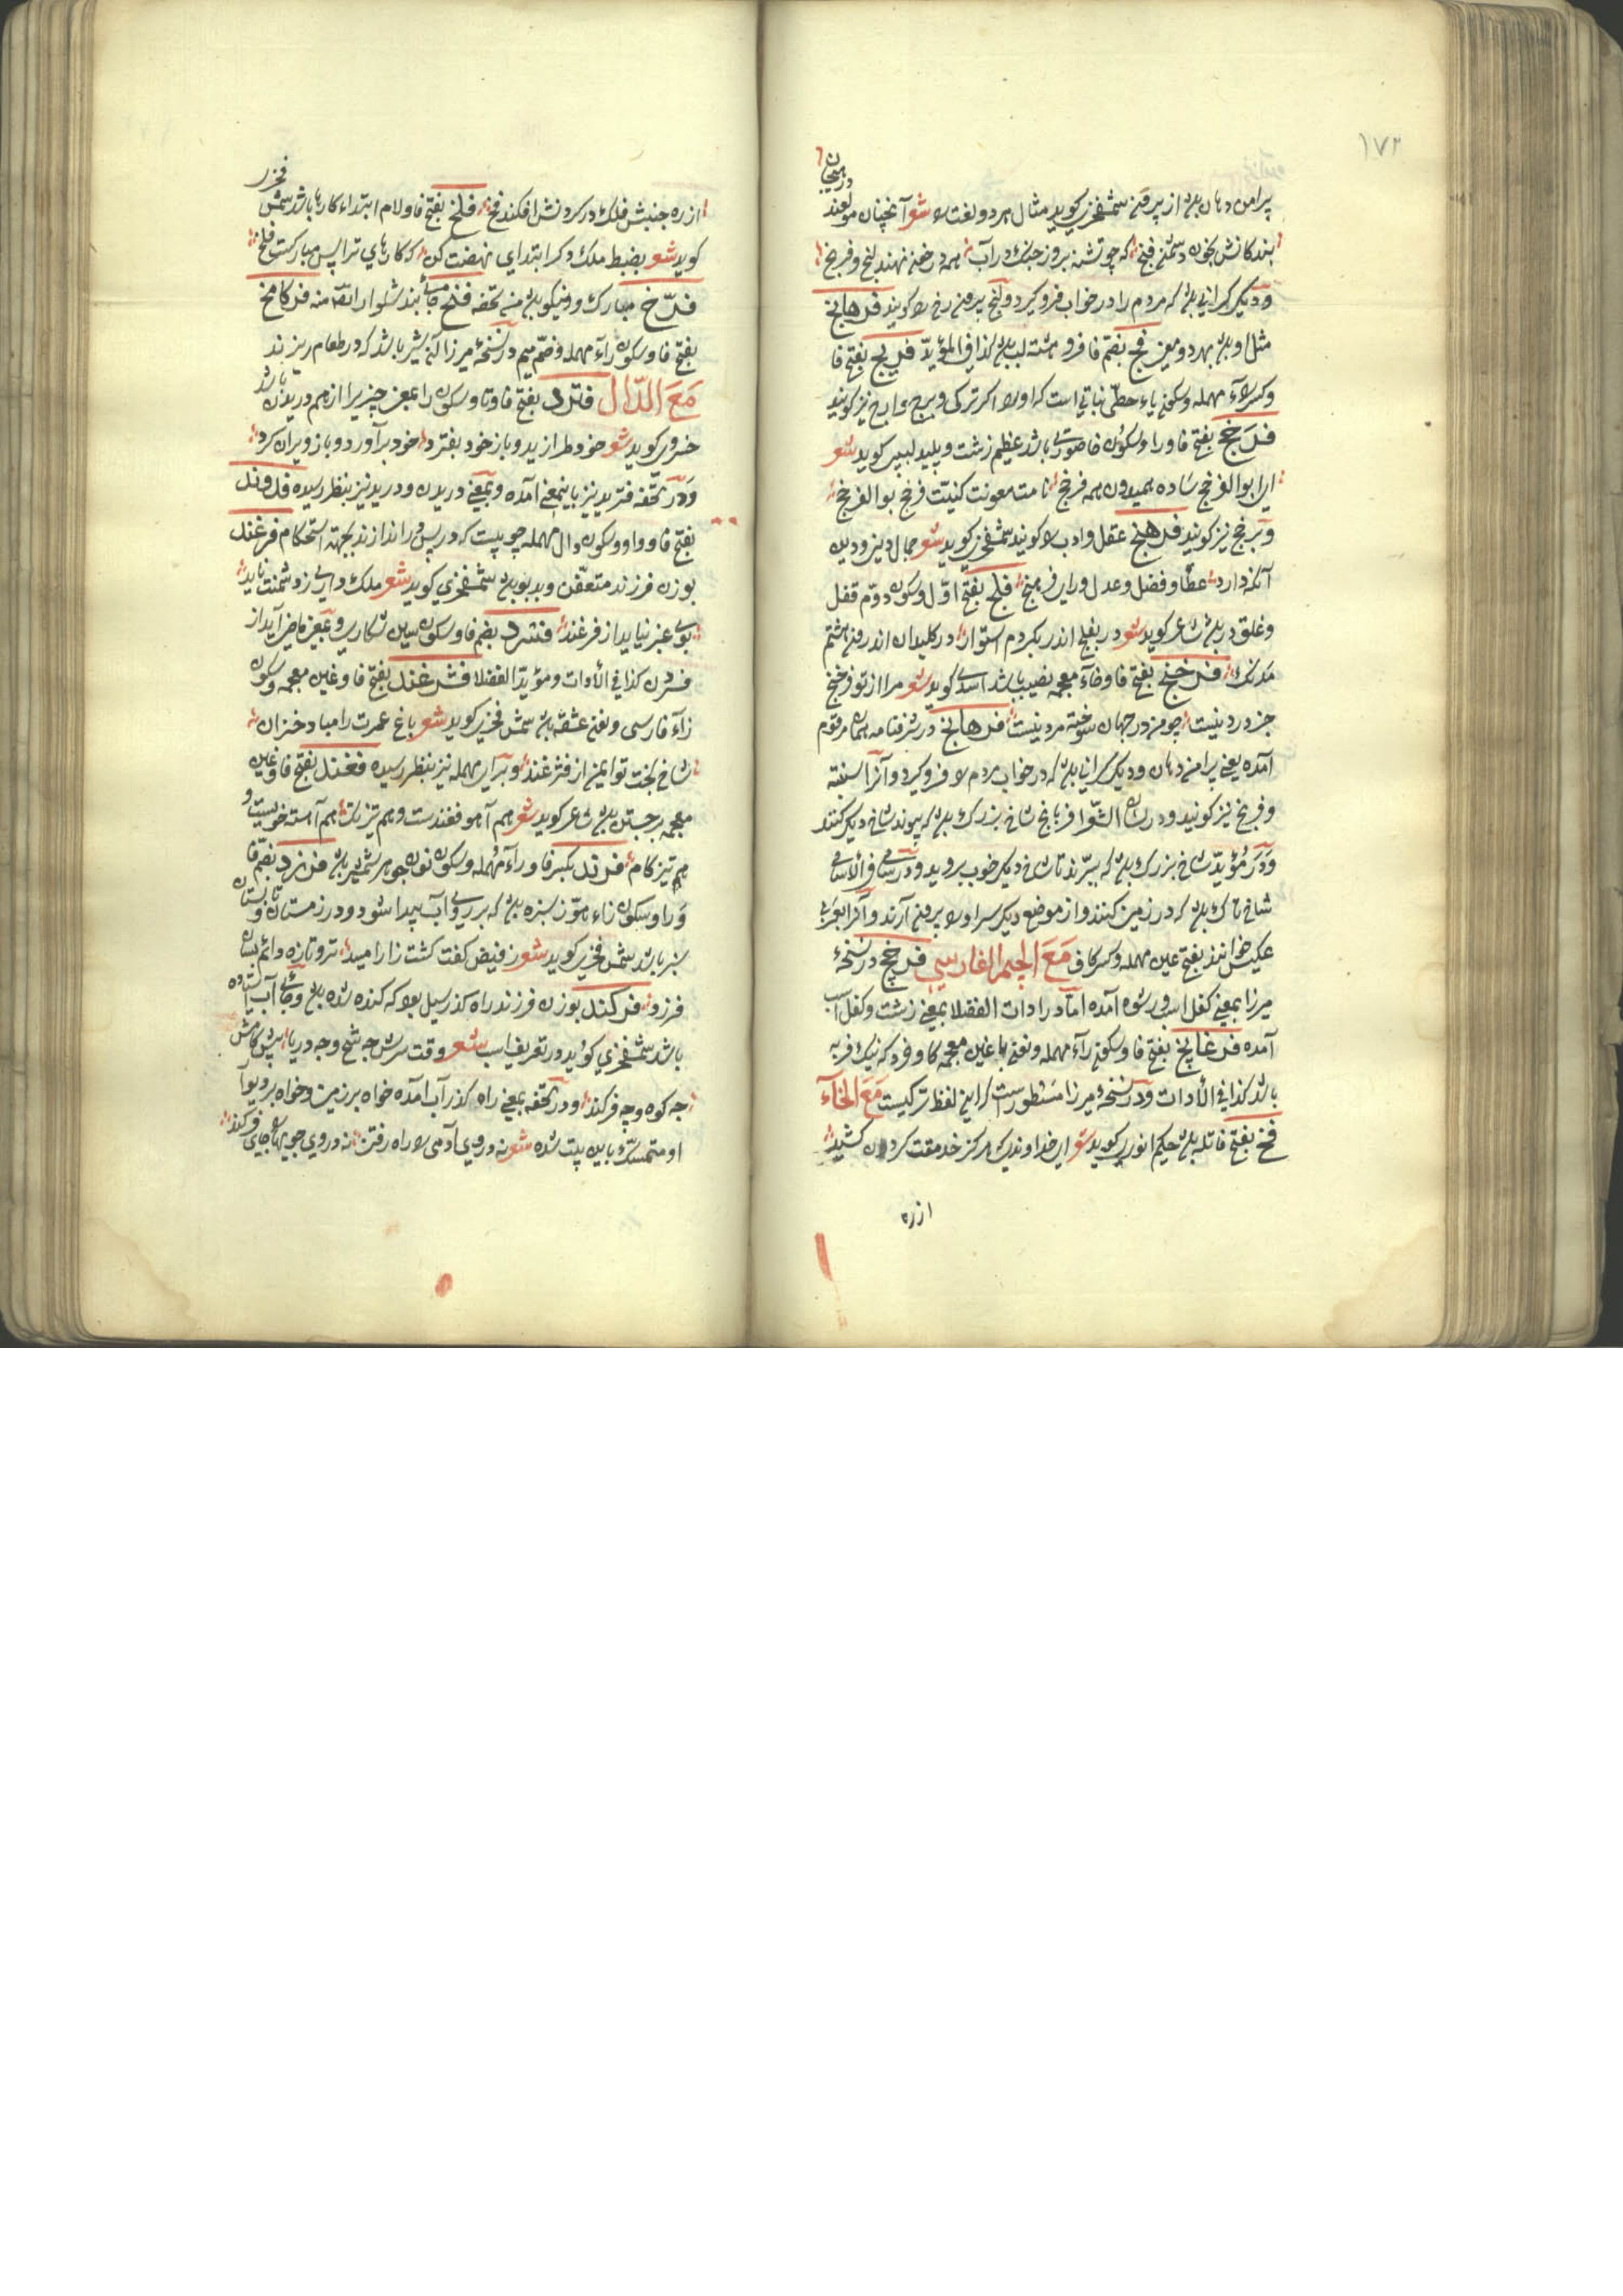 ۱۷۲
پرامن دهان بود از بیرون شمس فخری کوید مثال هر دو لغت را شعر آنچنان مولعند
در هیجان
بندکانش بخون دشمن فنج که چو تشنه بروز جنک در آب همه در خون نهند لنج و فرنج
و دیکر کرانی بود که مردم را در خواب فرو کیرد و لنج بیرون رخ را کویند فرهانج
مثل او بود بهر دو معنی فج بضم فا فروهشته لب بود کذا فی المؤید فریج بفتح فا
و کسر راء مهمله و سکون یاء حطی نباتی است که او را اکر ترکی و برج و اج نیز کویند
فرخج بفتح فا و را و سکون خا صورتی باشد عظیم زشت و پلید لبیبی کوید شعر
ای ابوالفرخج ساده همیدون همه فرخج نامت معونت کنیت فرخج بوالفرخج
و برخج نیز کویند فرهنج عقل و ادب را کویند شمس فخری کوید شعر جمال دنیی و دین
آنکه دارد عطا و فضل و عدل و رای و فرهنج فلج بفتح اول و سکون دوم قفل
و غلق در بود شاعر کوید شعر در بفلج اندر بکردم استوار در کلیدان اندرون هشتم
مدنک فرخنج بفتح فا و خاء معجمه نصیب باشد اسدی کوید شعر مرا از تو فرخنج
جز درد نیست چو من در جهان سوخته مرد نیست فرهانج در شرفنامه همان مرقوم
آمده یعنی پرامن دهان و دیکر کرانی بود که در خواب مردم را فرو کیرد و آنرا سنته
و فرنج نیز کویند و در لسان الشعرا فرهانج شاخ بزرک بود که پیوند شاخ دیکر کنند
و در مؤید شاخ بزرک بود که ببرند تا شاخ دیکر خوب بروید و در سامی فی الاسامی
شاخ تاک بود که در زمین کنند و از موضع دیکر سر او را بیرون آرند و آنرا بعربی
عکیس خوانند بفتح عین مهمله و کسر کاف مع الجیم الفارسی فرخچ در نسخهٔ
میرزا بمعنی کفل اسب و رسوه آمده اما در ادات الفضلا بمعنی زشت و کفل اسب
آمده فرغانچ بفتح فا و سکون راء مهمله و نون با غین معجمه کاو و خر که نیک فربه
باشد کذا فی الادات و در نسخهٔ میرزا مسطورست که این لفظ ترکیست مع الخاء
فخ بفتح فا تله بود حکیم انوری کوید شعر ای خداوندی که هر کز خدمتت کردن کشید
از ره
از ره جنبش فلک در کردنش افکند فخ فلخ بفتح فا و لام ابتداء کارها باشد شمس
فخری
کوید شعر بضبط ملک دکر ابتدای نهضت کن که کارهای ترا پس مبارکست فلخ
فرّخ مبارک و نیکو بود من تحفه فنخ جای بند شلوار ایضا منه فرکامخ
بفتح فا و سکون راء مهمله و ضم میم در نسخهٔ میرزا آنچه شیر باشد که در طعام ریزند
مع الدال فترد بفتح فا و تا و سکون را یعنی چیزی را از هم دریدن باشد
خسروی کوید شعر خود طرازید و باز خود بفترد خود برآورد و باز ویران کرد
و در تحفه فترید نیز باینمعنی آمده و بمعنی دریدن و درید نیز بنظر رسیده فروند
بفتح فا و واو و سکون دال مهمله چوبیست که در پس در اندازند بجهت استحکام فرغند
بوزن فرزند متعفن و بدبو بود شمس فخری کوید شعر ملک داری ز دشمنت ناید
بوی عنبر نیاید از فرغند فسرد بضم فا و سکون سین شکار و یعنی ماضی آید از
فسردن کذا فی الادات و مؤید الفضلا فژغند بفتح فا و غین معجمه و سکون
زاء فارسی و نون عشقه بود شمس فخری کوید شعر باغ عمرت را مباد خزان
شاخ بخت تو ایمن از فژغند و برای مهمله نیز بنظر رسیده فغند بفتح فا و غین
معجمه برجستن بود شاعر کوید شعر هم آهو فغندست و هم تیزتک هم آهسته خویست و
هم تیزکام فرند بکسر فا و راء مهمله و سکون نون جوهر شمشیر بود فرزد بضم فا
و را و سکون زاء هوز سبزه بود که بر روی آب پیدا شود و در زمستان و تابستان
سبز باشد شمس فخری کوید شعر ز فیض کفت کشت زار امید تر و تازه دائم بسان
فرزد فرکند بوزن فرزند راه کذر سیل بود که کنده شده بود و جای آب ایستاده
باشد شمس فخری کوید در تعریف اسب شعر وقت سرش چه شخ و چه دریا پیش کامش
چه کوه و چه فرکند و در تحفه بمعنی راه کذر آب آمده خواه بر زمین و خواه بر دیوار
او متمسک باین بیت شده شعر نه در وی آدمی را راه رفتن نه در وی جویها جای فرکند